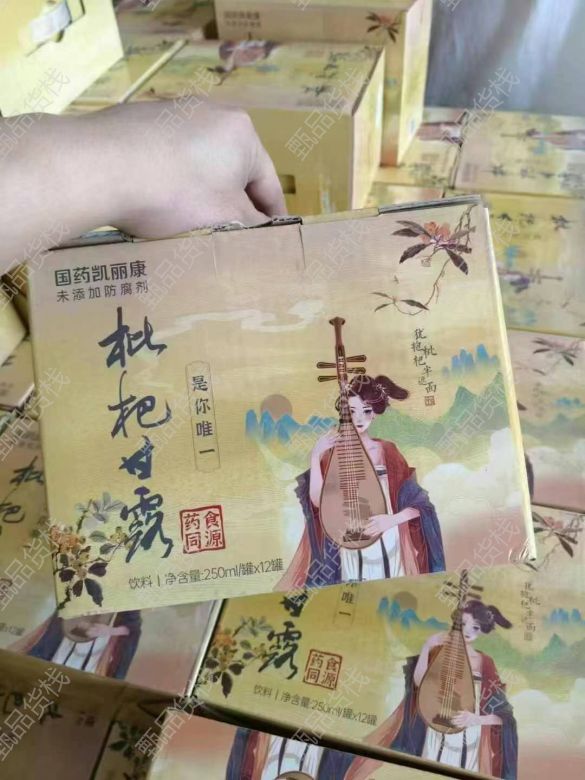 国药凯丽康
未添加防腐剂
枇杷甘露
是你唯一
犹抱枇
杷半遮面
药食
同源
饮料 | 净含量:250ml/罐x12罐
是你唯一
甘露
药食
同源
饮料 | 净含量:250ml/罐x12罐
甄品货栈